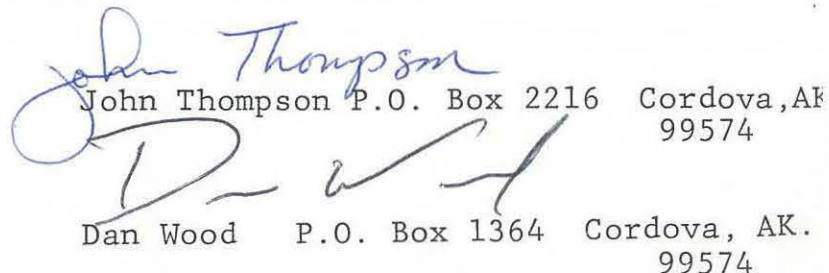 John Thompson
John Thompson P.O. Box 2216 Cordova,AK
99574
Dan Wood
Dan Wood P.O. Box 1364 Cordova, AK.
99574